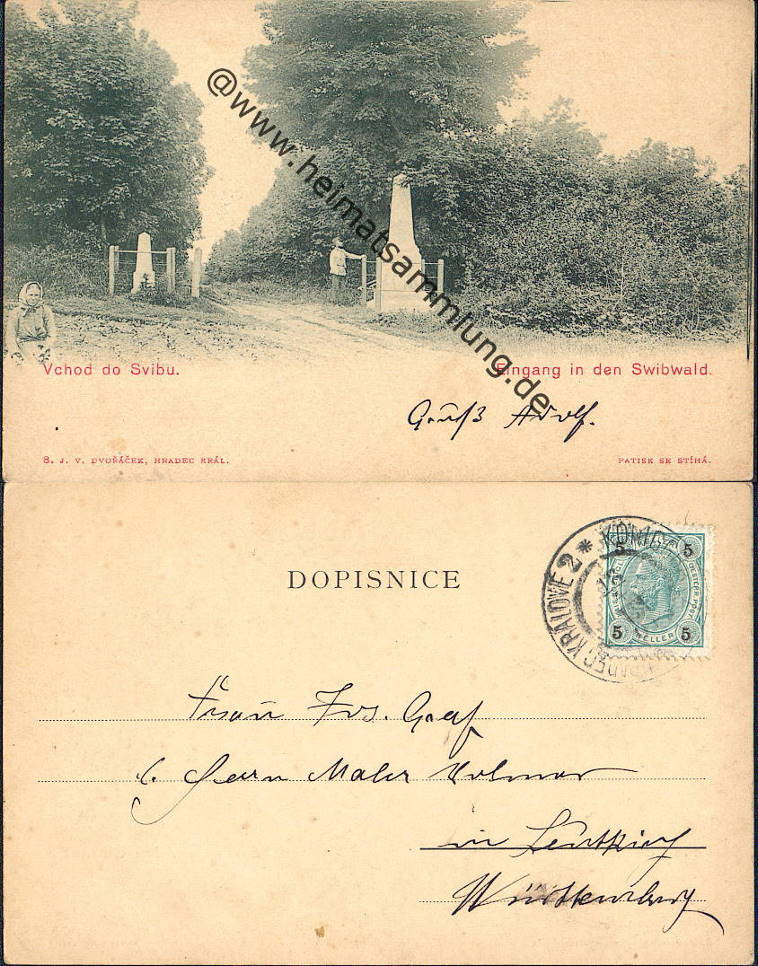 @www.heimatsammlung.de
Vchod do Svibu.
Eingang in den Swibwald.
Gruß Adolf.
S. J. V. DVOŘÁČEK, HRADEC KRÁL.
PATISK SE STÍHÁ.
DOPISNICE
HRADEC KRÁLOVÉ 2 * KÖNIG
5 5
5 HELLER 5
Frau Frs. Graf
b. Herrn Maler Volmar
in Leutkirch
Württemberg